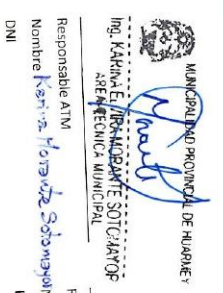 MUNICIPALIDAD PROVINCIAL DE HUARMEY
Ing. KARINA E. MORANTE SOTOMAYOR
AREA TECNICA MUNICIPAL
Responsable ATM
Nombre Karina Morante Sotomayor
DNI